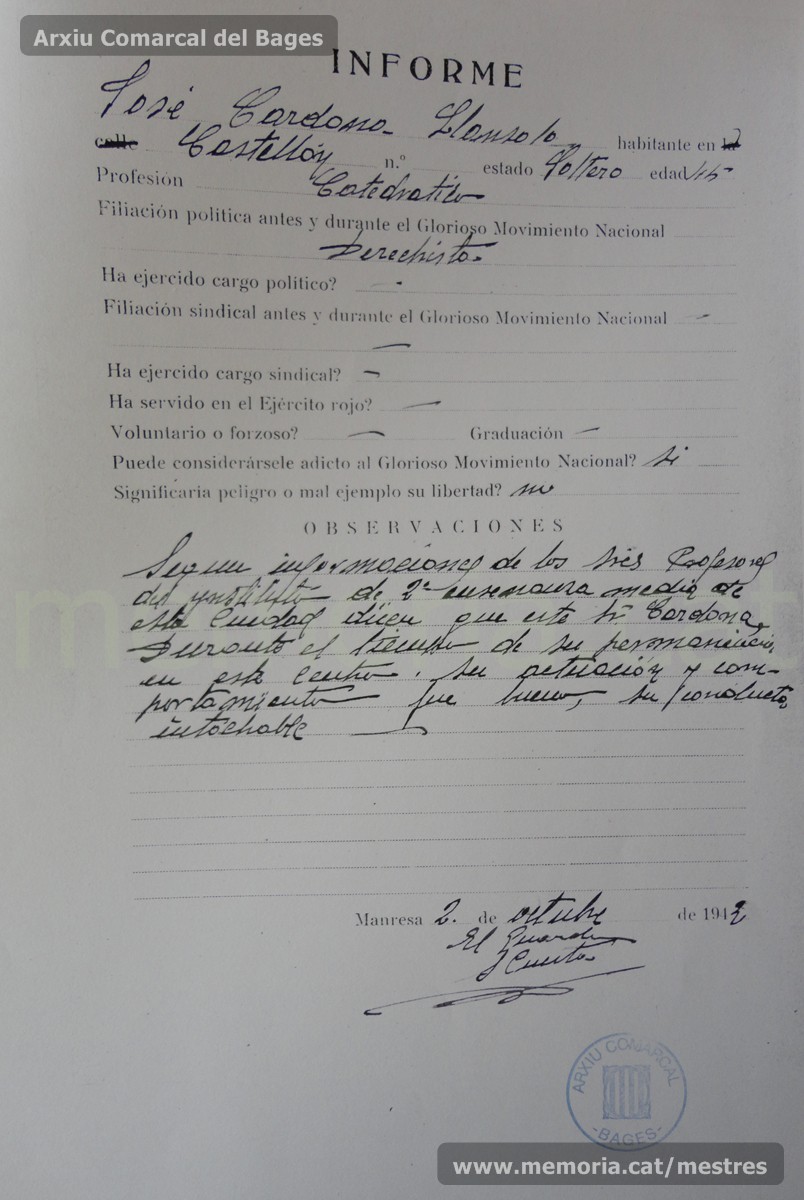 Arxiu Comarcal del Bages
INFORME
José Cardona Llansola habitante en la
calle Castellón n.º estado Soltero edad 45
Profesión Catedratico
Filiación política antes y durante el Glorioso Movimiento Nacional
Derechista
Ha ejercido cargo político? -
Filiación sindical antes y durante el Glorioso Movimiento Nacional -
-
Ha ejercido cargo sindical? -
Ha servido en el Ejército rojo? -
Voluntario o forzoso? - Graduación -
Puede considerársele adicto al Glorioso Movimiento Nacional? si
Significaría peligro o mal ejemplo su libertad? no
OBSERVACIONES
Segun informaciones de los tres Profesores
del ynstituto de 2ª ensenanza media de
esta Ciudad dicen que este Sr Cardona,
Durante el tiempo de su permanencia
en este Centro. su actuación y com-
portamiento fue bueno, su conducta
intachable
Manresa 2. de octubre de 1942
El Guardia
ARXIU COMARCAL
-BAGES-
www.memoria.cat/mestres